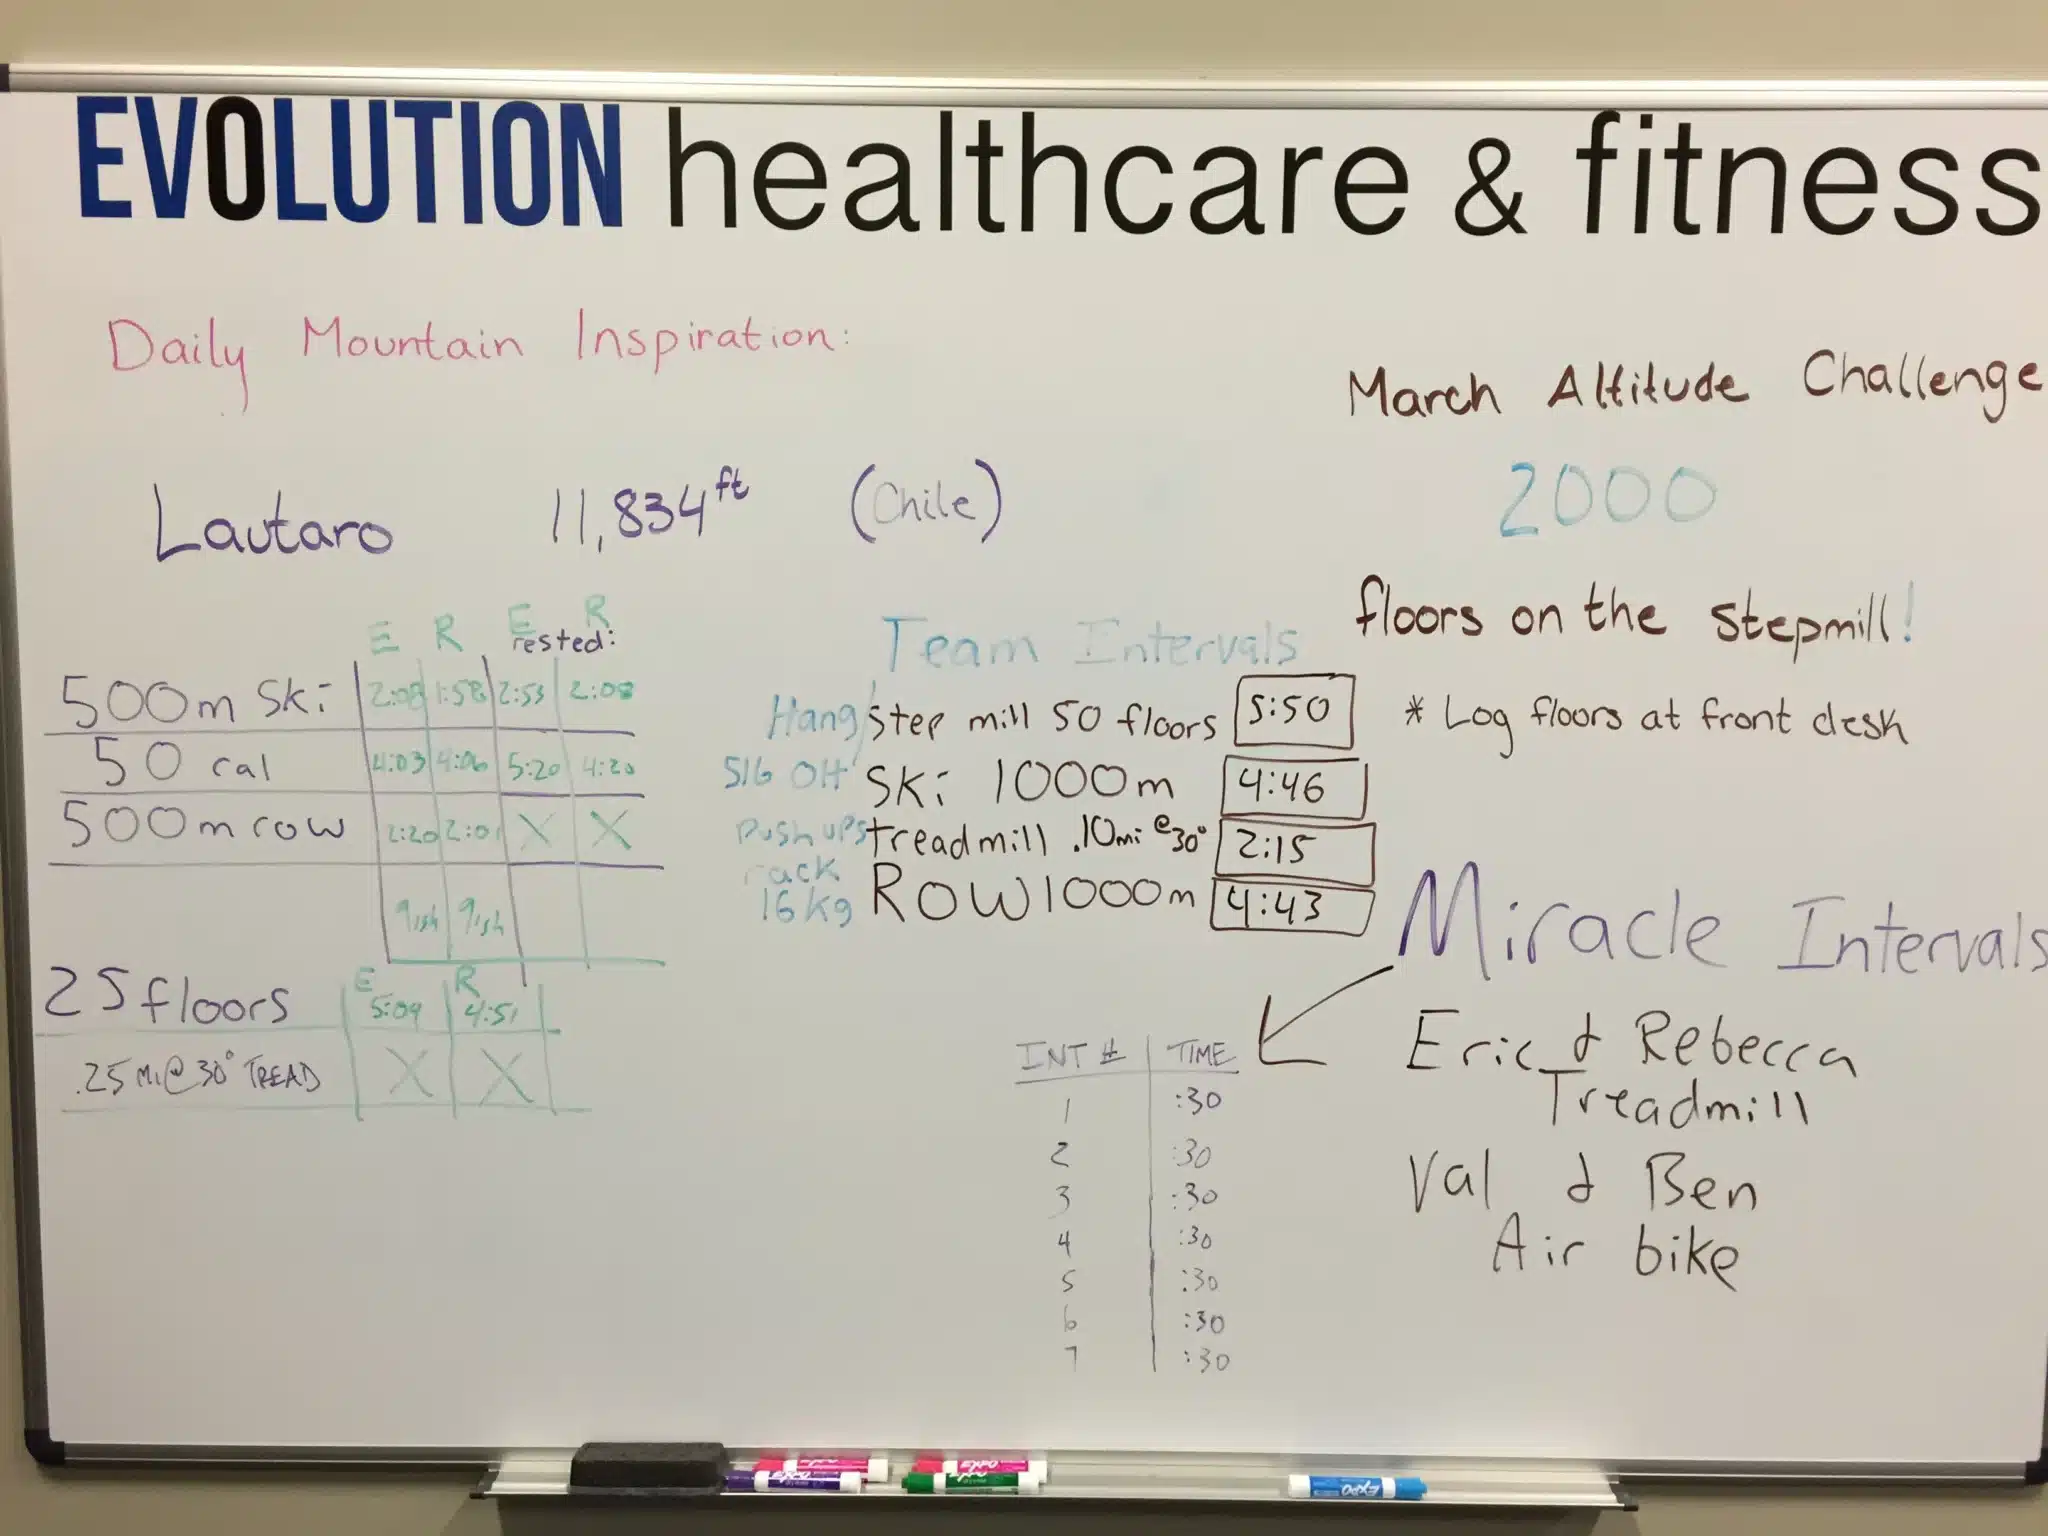 EVOLUTION healthcare & fitness
Daily Mountain Inspiration:
Lautaro 11,834 ft (Chile)
March Altitude Challenge
2000
floors on the stepmill!
* Log floors at front desk
E R E R
rested:
500m Ski 2:08 1:58 2:53 2:08
50 cal 4:03 4:06 5:20 4:20
500m row 2:20 2:01 X X
9ish 9ish
E R
25 floors 5:09 4:51
.25 Mi @ 30° TREAD X X
Team Intervals
Hang/ step mill 50 floors 5:50
51b OH Ski 1000m 4:46
push ups treadmill .10mi @ 30° 2:15
rack
16kg ROW 1000m 4:43
Miracle Intervals
Eric & Rebecca
Treadmill
Val & Ben
Air bike
INT # TIME
1 :30
2 :30
3 :30
4 :30
5 :30
6 :30
7 :30
EXPO
EXPO
EXPO
EXPO
EXPO